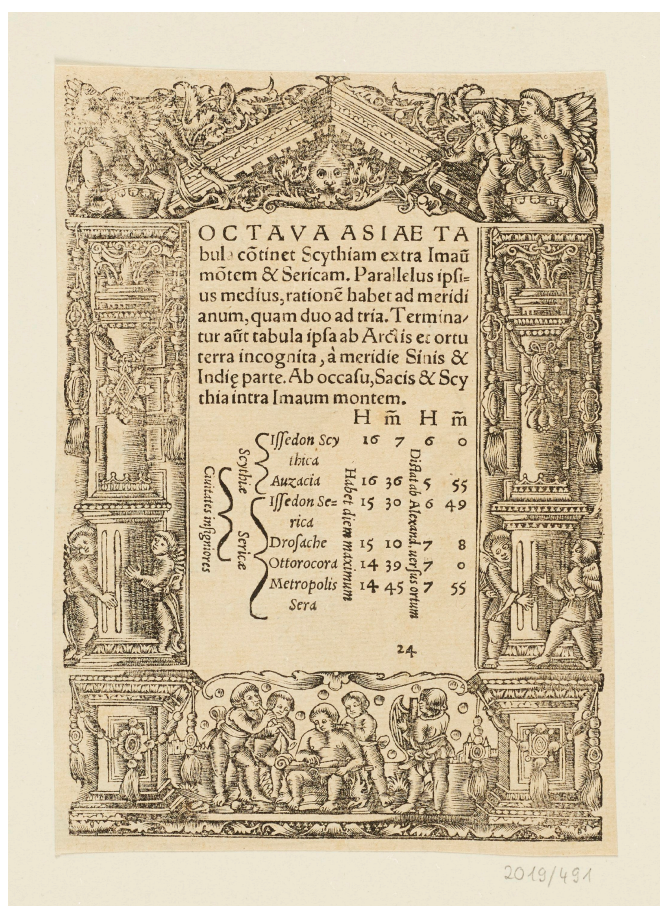 OCTAVA ASIAE TA
bula cõtinet Scythiam extra Imaũ
mõtem & Sericam. Parallelus ipsi=
us medius, rationẽ habet ad meridi
anum, quam duo ad tria. Termina/
tur aũt tabula ipsa ab Arctis et ortu
terra incognita, à meridie Sinis &
Indię parte. Ab occasu, Sacis & Scy
thia intra Imaum montem.
H m̃ H m̃
Ciuitates insigniores
Scythiæ
Sericæ
Habet diem maximum
Distat ab Alexand. uersus ortum
Issedon Scy 16 7 6 0
thica
Auzacia 16 36 5 55
Issedon Se= 15 30 6 49
rica
Drosache 15 10 7 8
Ottorocora 14 39 7 0
Metropolis 14 45 7 55
Sera
24
2019/491